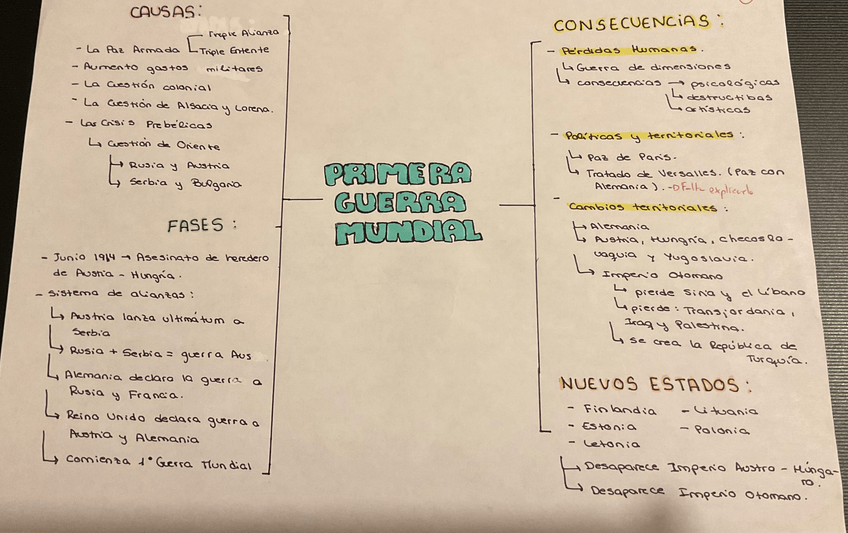 CAUSAS:
- La Paz Armada
Triple Alianza
Triple Entente
- Aumento gastos militares
- La Cuestión colonial
- La Cuestión de Alsacia y Lorena.
- Las Crisis Prebélicas
Cuestión de Oriente
Rusia y Austria
Serbia y Bulgaria
FASES:
- Junio 1914 → Asesinato de heredero
de Austria - Hungría.
- Sistema de alianzas:
Austria lanza ultimátum a
Serbia
Rusia + Serbia = guerra Aus
Alemania declara la guerra a
Rusia y Francia.
Reino Unido declara guerra a
Austria y Alemania
Comienza 1º Gerra Mundial
PRIMERA
GUERRA
MUNDIAL
CONSECUENCIAS:
- Pérdidas Humanas.
Guerra de dimensiones
consecuencias → psicológicas
destructibas
artísticas
- Políticas y territoriales:
Paz de París.
Tratado de Versalles. (Paz con
Alemania). explicarlo
- Cambios territoriales:
Alemania
Austria, Hungría, Checoslo-
vaquia y Yugoslavia.
Imperio Otomano
pierde Siria y el Líbano
pierde: Transjordania,
Iraq y Palestina.
se crea la República de
Turquía.
NUEVOS ESTADOS:
- Finlandia - Lituania
- Estonia - Polonia
- Letonia
Desaparece Imperio Austro - Húnga-
ro.
Desaparece Imperio Otomano.